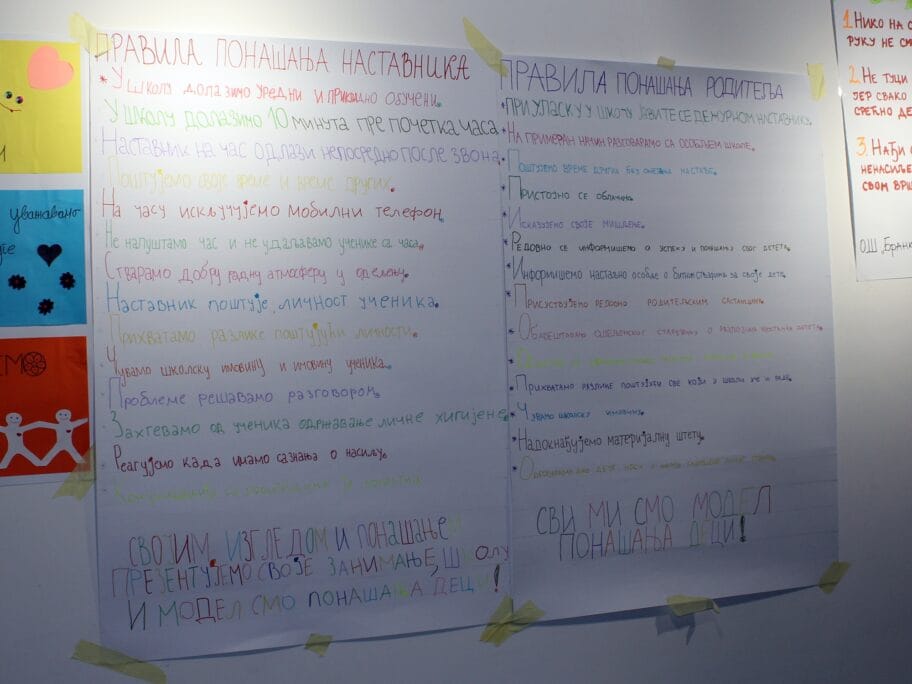 ПРАВИЛА ПОНАШАЊА НАСТАВНИКА
У школу долазимо уредни и прикладно обучени.
У школу долазимо 10 минута пре почетка часа.
Наставник на час одлази непосредно после звона.
Поштујемо своје време и време других.
На часу искључујемо мобилни телефон.
Не напуштамо час и не удаљавамо ученике са часа.
Стварамо добру радну атмосферу у одељењу.
Наставник поштује личност ученика.
Прихватамо разлике поштујући личности.
Чувамо школску имовину и имовину ученика.
Проблеме решавамо разговором.
Захтевамо од ученика одржавање личне хигијене.
Реагујемо када имамо сазнања о насиљу.
СВОЈИМ ИЗГЛЕДОМ И ПОНАШАЊЕ
ПРЕЗЕНТУЈЕМО СВОЈЕ ЗАНИМАЊЕ, ШКОЛУ
И МОДЕЛ СМО ПОНАШАЊА ДЕЦИ!
ПРАВИЛА ПОНАШАЊА РОДИТЕЉА
* ПРИ УЛАСКУ У ШКОЛУ ЈАВИТЕ СЕ ДЕЖУРНОМ НАСТАВНИКУ.
* НА ПРИМЕРАН НАЧИН РАЗГОВАРАМО СА ОСОБЉЕМ ШКОЛЕ.
* Поштујемо време других без ометања наставе.
* Пристојно се облачимо.
* Исказујемо своје мишљење.
* Редовно се информишемо о успеху и понашању свог детета.
* Информишемо наставно особље о битним за своје дете.
* Присуствујемо редовно родитељским састанцима.
* о
* Прихватамо разлике поштујем све који у школи уче и раде.
* Чувамо школску имовину.
* Надокнађујемо материјалну штету.
СВИ МИ СМО МОДЕЛ
ПОНАШАЊА ДЕЦИ!
1. Нико на с
руку не см
2. Не туци
јер свако
срећно де
3. Нађи
ненасиље
свом врш
ОШ „Бранк
и
уважавамо
СМО